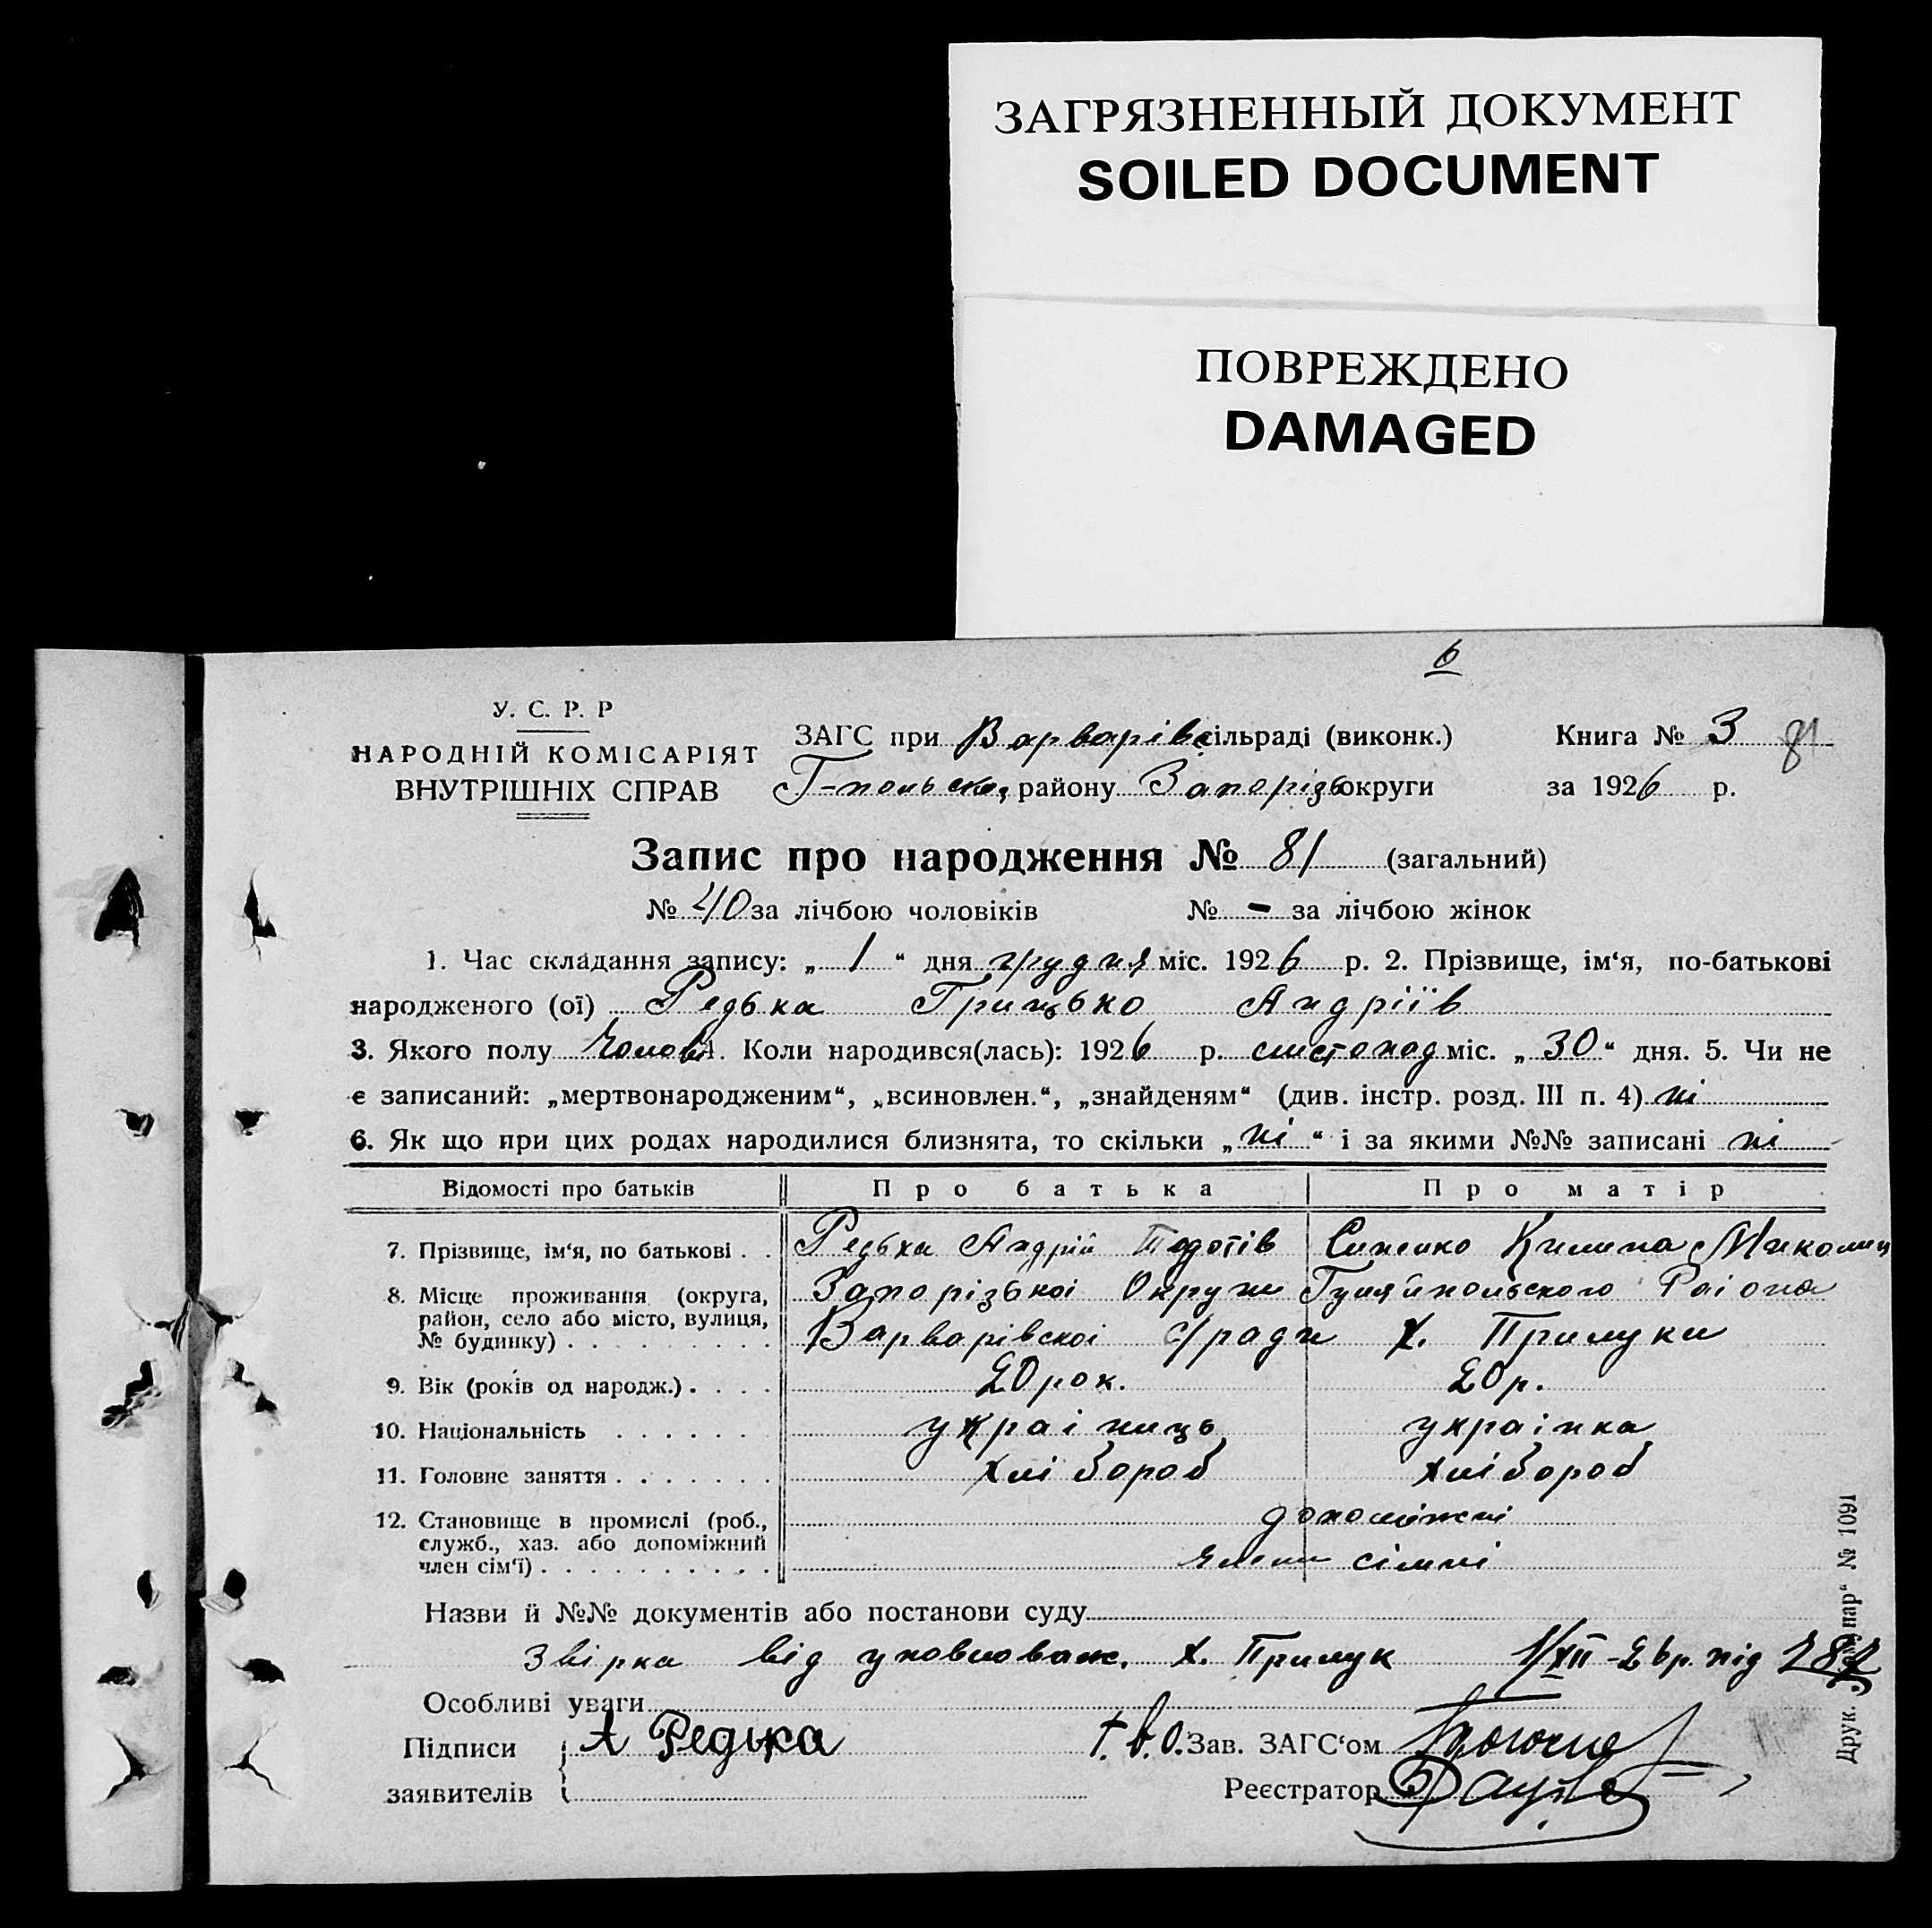 ЗАГРЯЗНЕННЫЙ ДОКУМЕНТ
SOILED DOCUMENT
ПОВРЕЖДЕНО
DAMAGED
6
У. С. Р. Р
НАРОДНІЙ КОМІСАРІЯТ
ВНУТРІШНІХ СПРАВ
ЗАГС при Варварівс сільраді (виконк.) Книга № 3 81
Г-польськ. району Запорізьк округи за 1926 р.
Запис про народження № 81 (загальний)
№ 40 за лічбою чоловіків № - за лічбою жінок
1. Час складання запису: „ 1 “ дня грудня міс. 1926 р. 2. Прізвище, ім‘я, по-батькові
народженого (ої) Редька Грицько Андріїв
3. Якого полу Чолов 4. Коли народився(лась): 1926 р. листопад міс. „ 30 “ дня. 5. Чи не
є записаний: „мертвонародженим“, „всиновлен.“, „знайденям“ (див. інстр. розд. III п. 4) ні
6. Як що при цих родах народилися близнята, то скільки „ ні “ і за якими №№ записані ні
Відомості про батьків Про батька Про матір
7. Прізвище, ім‘я, по батькові . . Редька Андрій Федотів Синенко Килина Миколаїв
8. Місце проживання (округа, район, село або місто, вулиця, № будинку) . . . . . . . . . Запорізькоі Округи Гуляйпольского Раіона
Варварівскоі с/ради х. Прилуки
9. Вік (років од народж.) . . . . 20 рок. 20 р.
10. Національність . . . . . . украінець украінка
11. Головне заняття . . . . . . . хлібороб хлібороб
12. Становище в промислі (роб., служб., хаз. або допоміжний член сім‘ї) . . . . . . . . . . допоміжні
члени сімні
Назви й №№ документів або постанови суду
Звірка від уповноваж. х. Прилук 1/XII-26 р. під 282
Особливі уваги
Підписи заявителів А Редька
т. в. о. Зав. ЗАГС‘ом
Реєстратор
Друк. № 1091